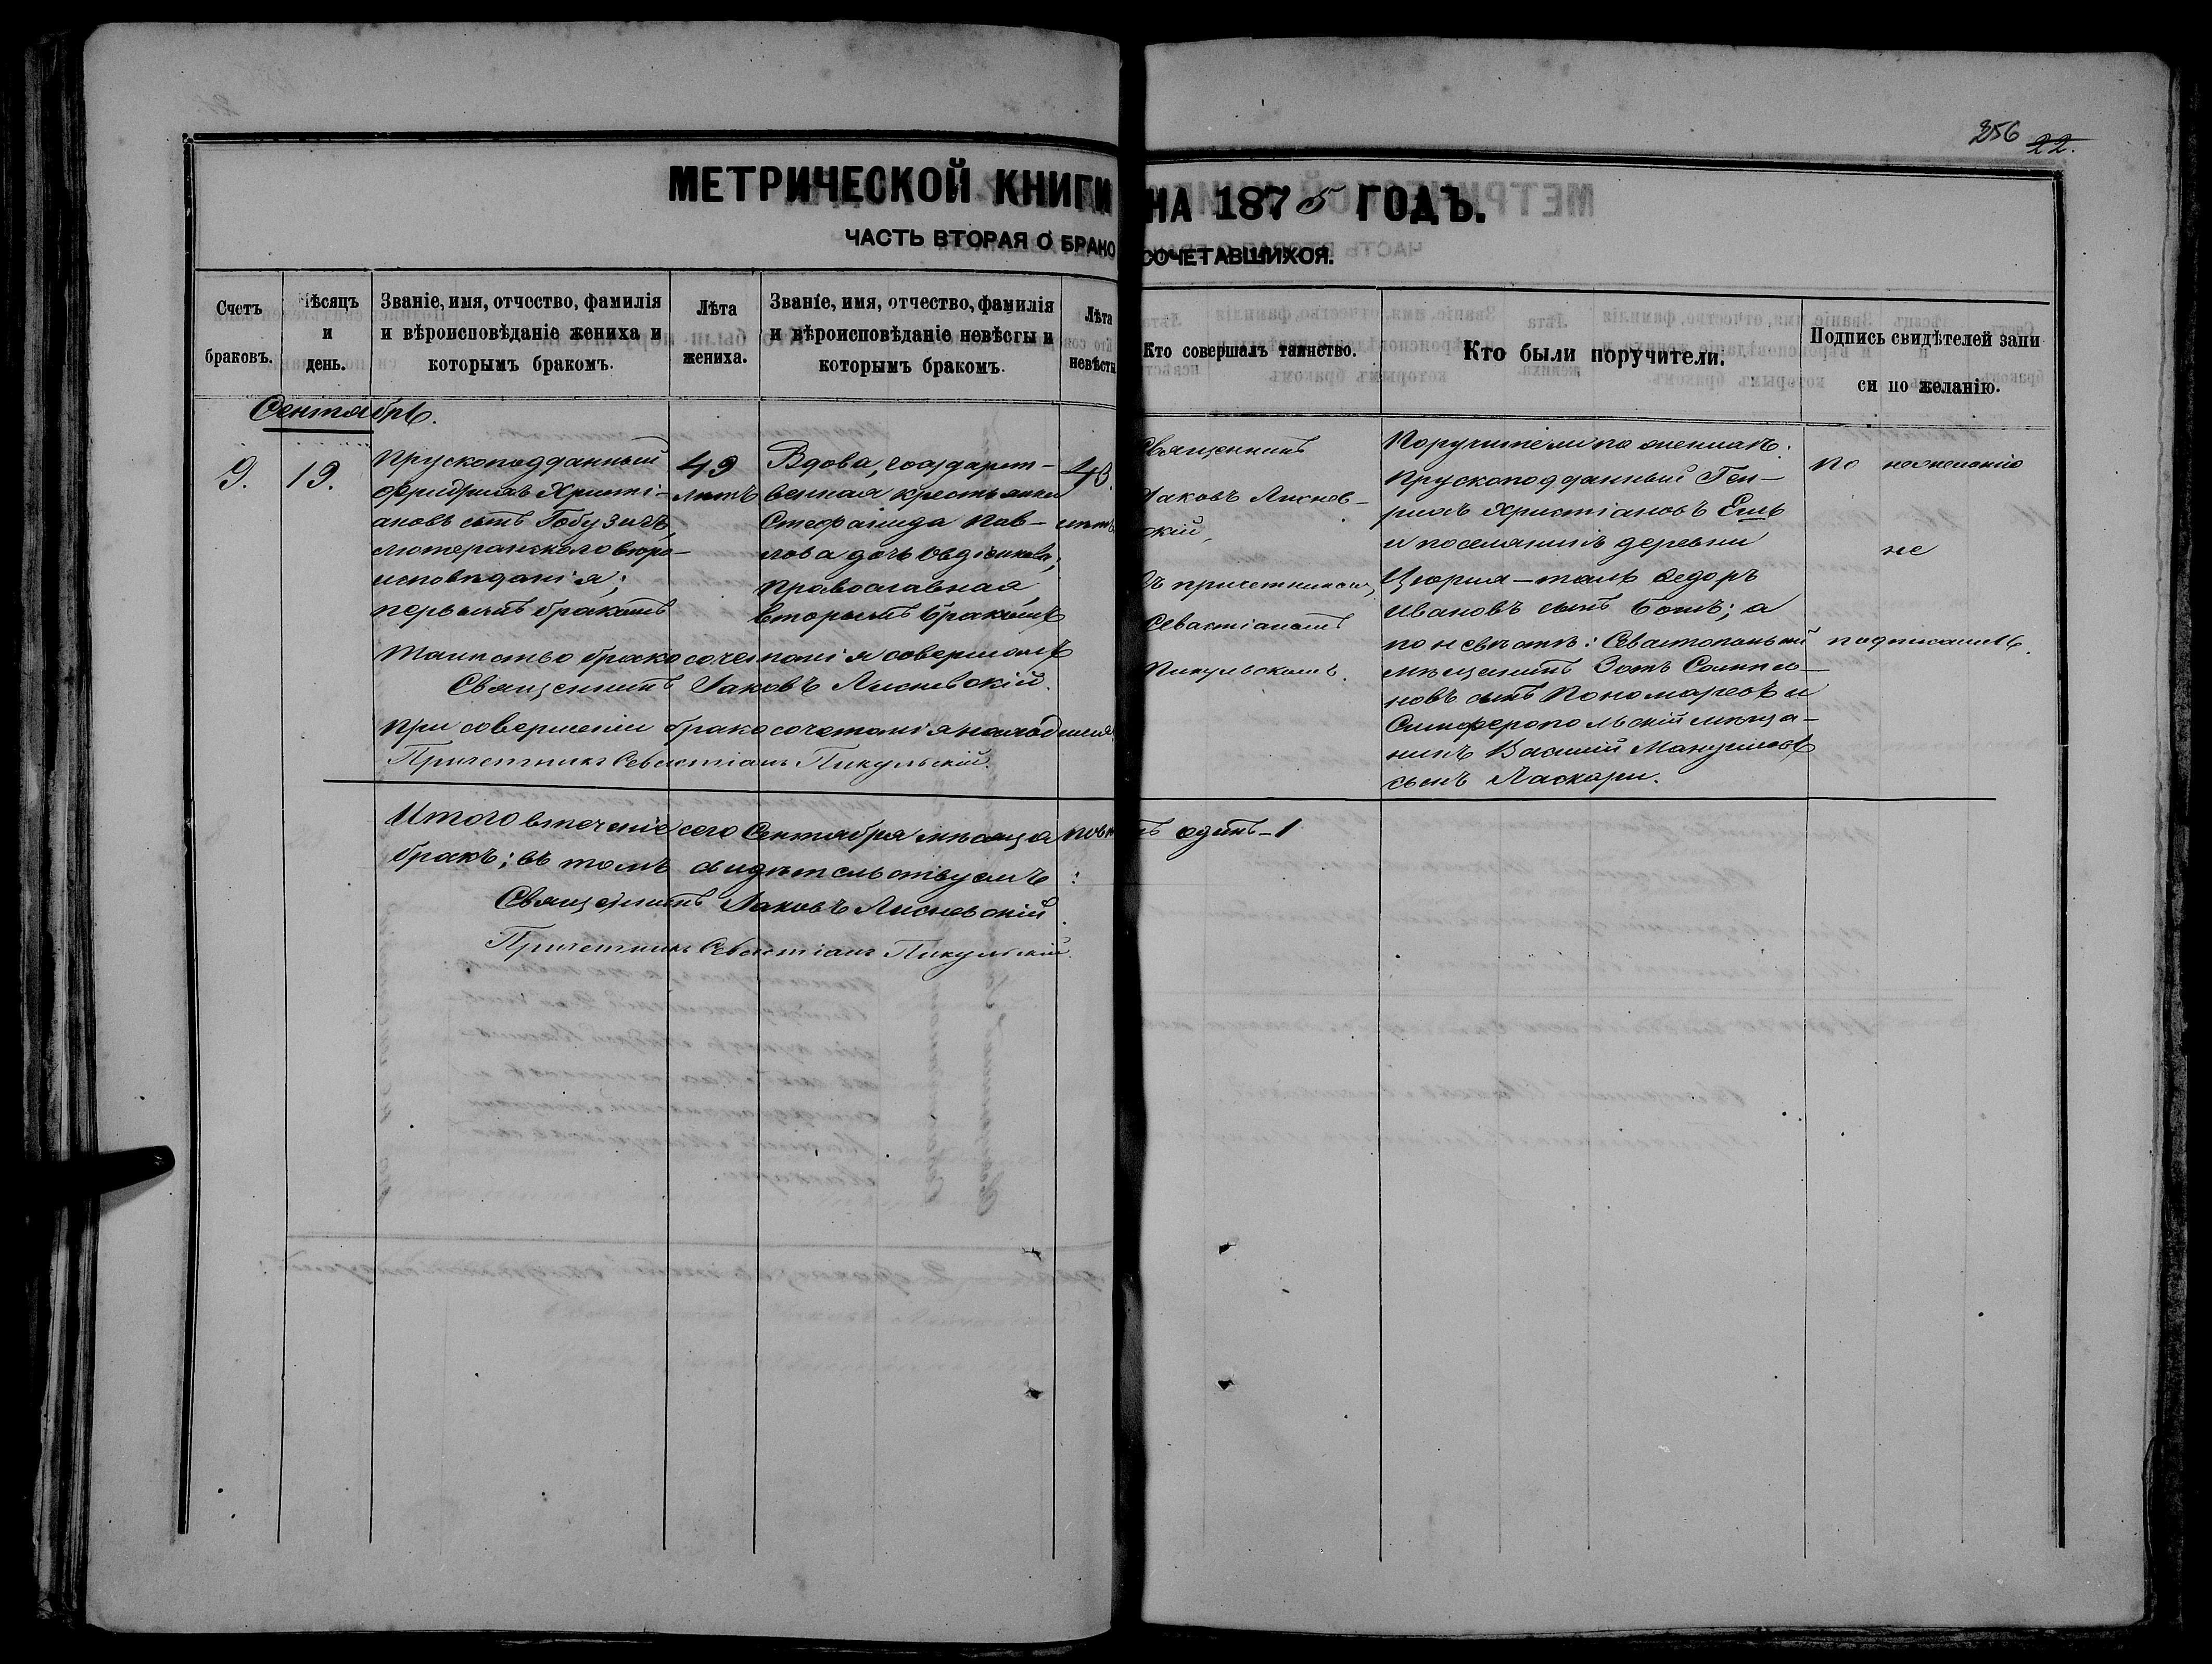 256 22.
МЕТРИЧЕСКОЙ КНИГИ НА 1875 ГОДЪ.
ЧАСТЬ ВТОРАЯ О БРАКОСОЧЕТАВШИХСЯ.
Счетъ браковъ.
Мѣсяцъ и день.
Званіе, имя, отчество, фамилія
и вѣроисповѣданіе жениха и
которымъ бракомъ.
Лѣта
жениха.
Званіе, имя, отчество, фамилія
и вѣроисповѣданіе невѣсты и
которымъ бракомъ.
Лѣта
невѣсты
Кто совершалъ таинство.
Кто были поручители.
Подпись свидѣтелей запи
си по желанію.
Сентябрь.
9.
19.
Прускоподданный
Фридрихъ Христі-
ановъ сынъ
лютеранскаго вѣро-
исповѣданія;
первымъ бракомъ
49
лѣтъ
Вдова, государст-
венная крестьянка
Стефанида Пав-
лова дочь Овдіенкова,
православная,
вторымъ бракомъ
43.
лѣтъ
Священникъ
Іаковъ Лиснев-
скій,
съ причетникомъ
Севастіаномъ
Пикульскимъ.
Поручители по женихѣ:
Прускоподданный Ген-
рихъ Христіановъ
и поселянинъ деревни
Цюрих-таль Ѳедоръ
Ивановъ сынъ Ботъ; а
по невѣстѣ: Севастопольскій
мѣщанинъ Зотъ
новъ сынъ Пономаревъ и
Симферопольскій мѣща-
нинъ Василій Мануиловъ
сынъ Ласкари.
по нежеланію
не
подписались.
Таинство бракосочетанія совершалъ
Священникъ Іаковъ Лисневскій.
При совершеніи бракосочетанія находился
Причетникъ Севастіанъ Пикульскій.
Итого втеченіе сего Сентября мѣсяца повѣнчанъ одинъ - 1
бракъ; въ томъ свидѣтельствуемъ:
Священникъ Іаковъ Лисневскій.
Причетникъ Севастіанъ Пикульскій.